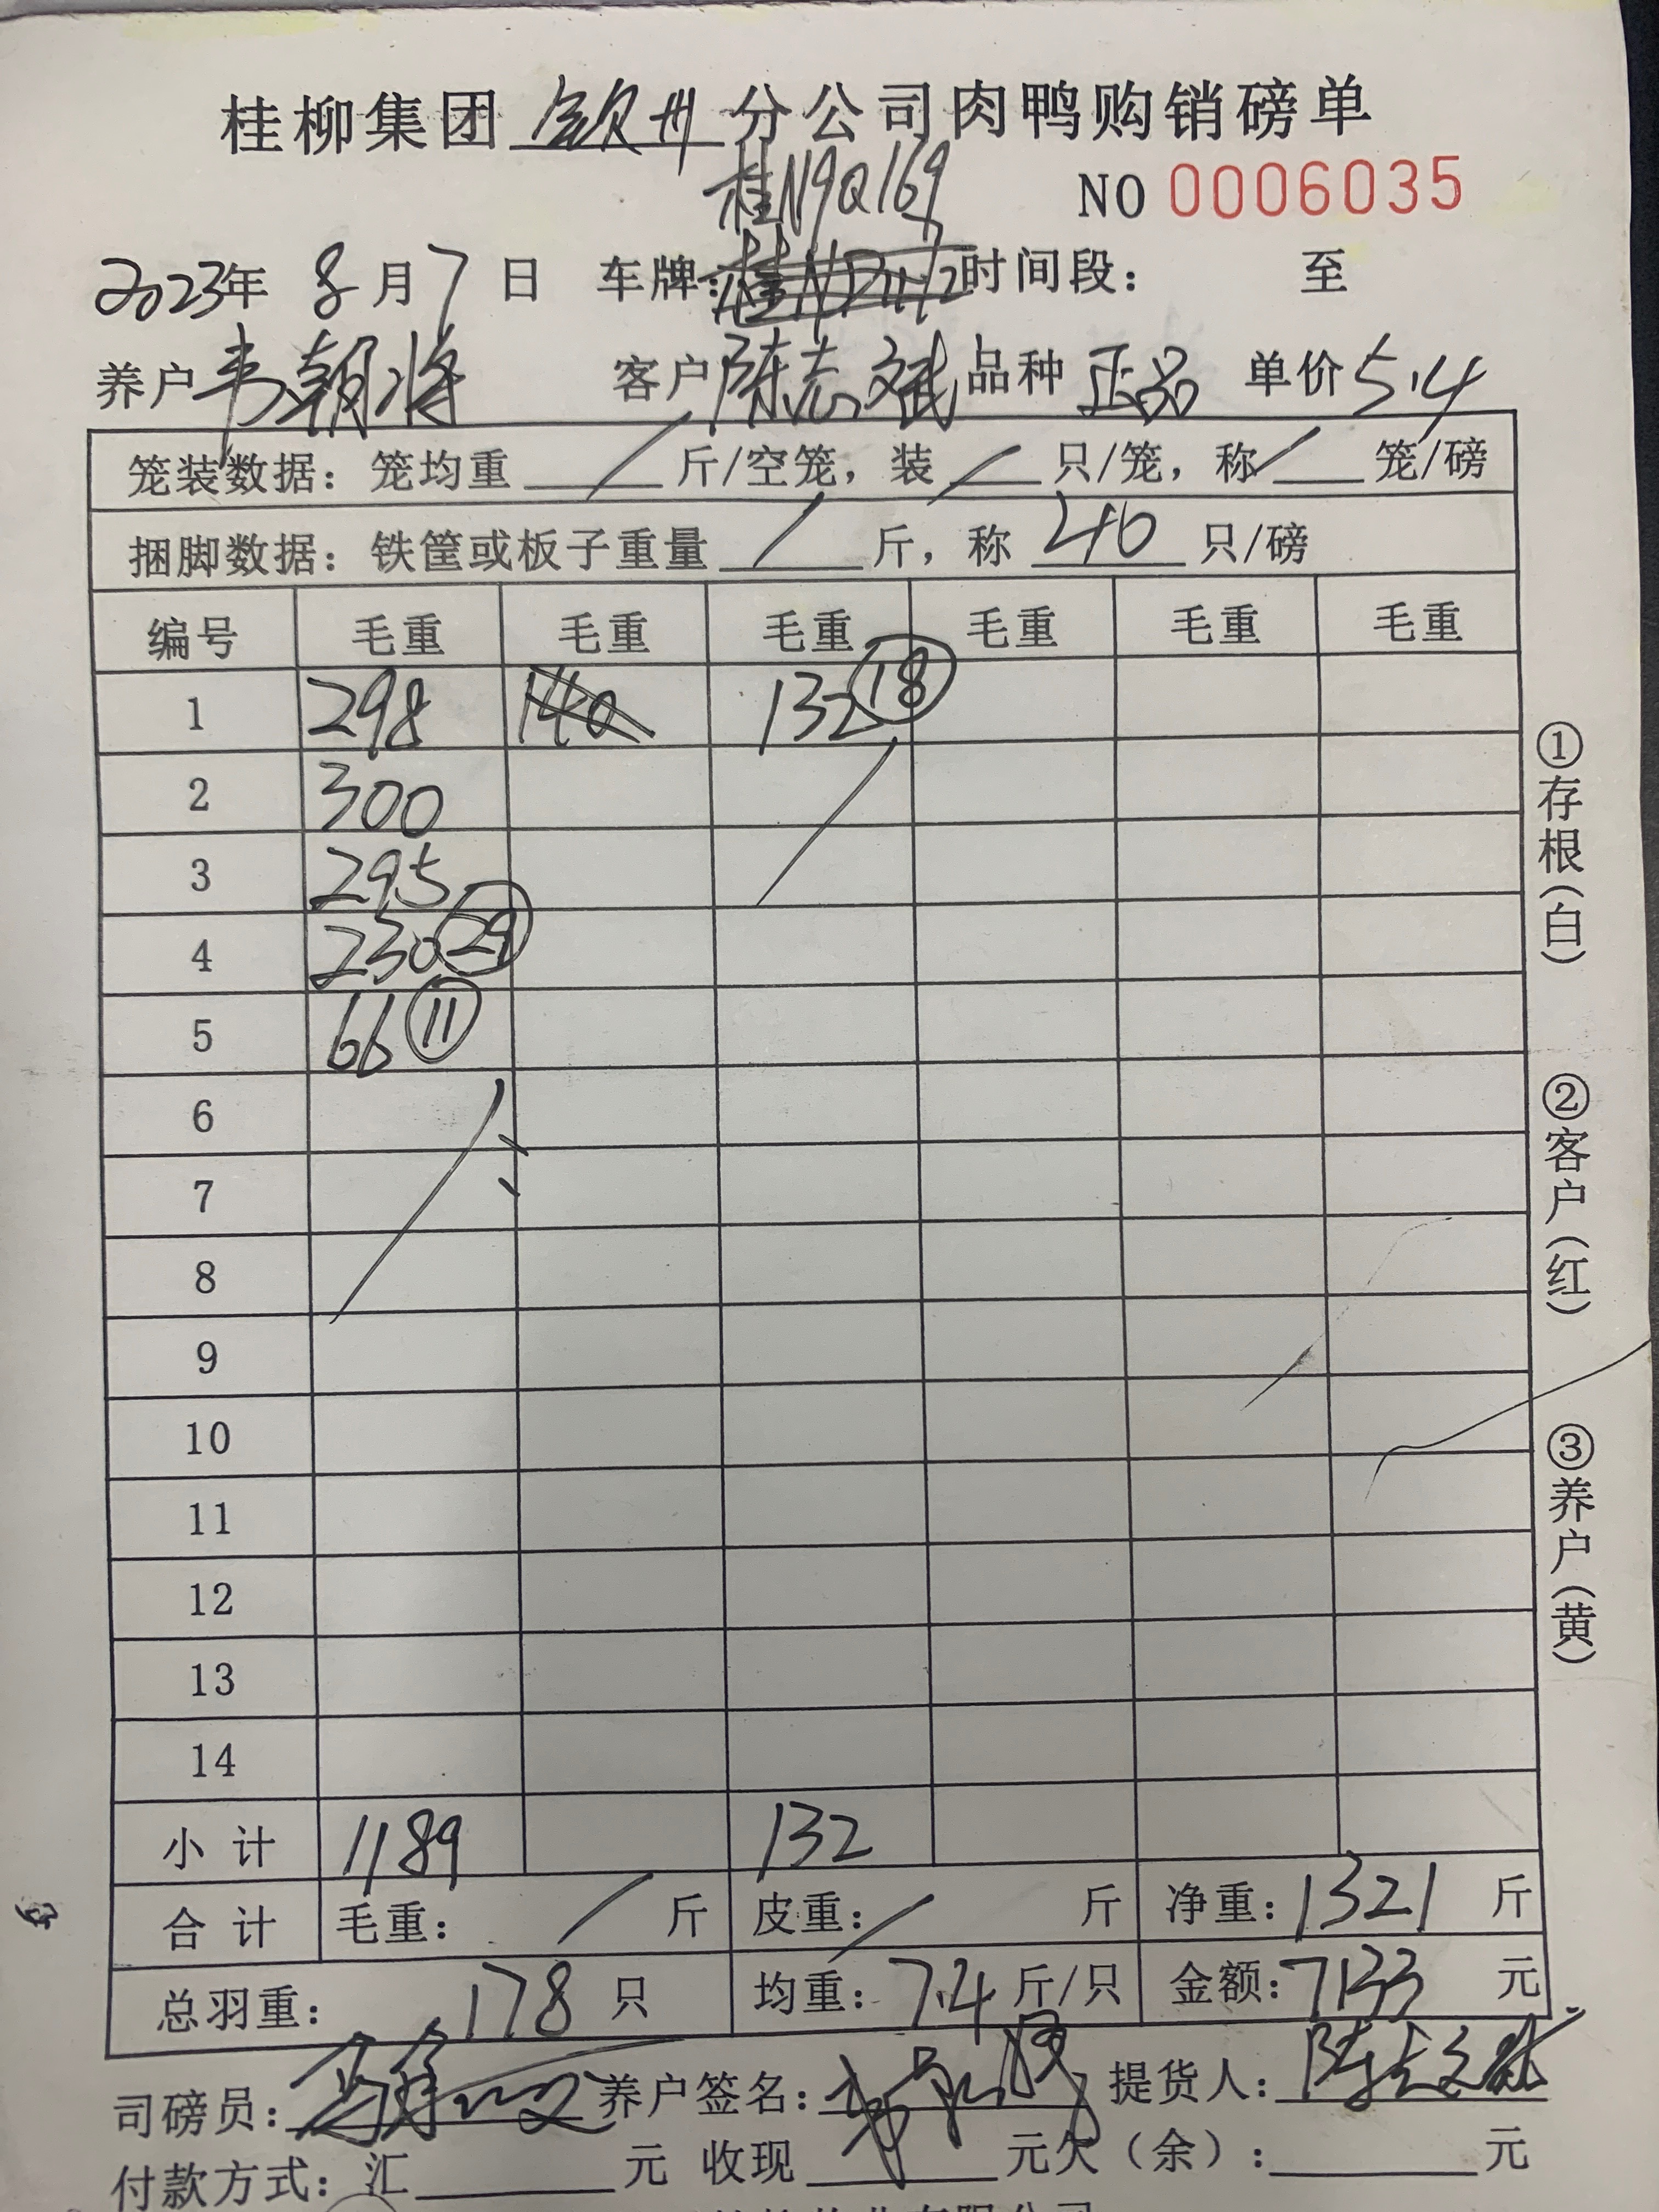 桂柳集团 钦州 分公司肉鸭购销磅单
桂N9Q169
NO 0006035
2023年 8月7日 车牌: 时间段: 至
养户 韦朝将 客户 陈志斌 品种 正品 单价 5.4
笼装数据: 笼均重 / 斤/空笼, 装 / 只/笼, 称 / 笼/磅
捆脚数据: 铁筐或板子重量 / 斤, 称 40 只/磅
编号 毛重 毛重 毛重 毛重 毛重 毛重
1 298 140 132 ⑱
2 300
3 295
4 230 ㉙
5 66 ⑪
6
7
8
9
10
11
12
13
14
小计 1189 132
合计 毛重: / 斤 皮重: / 斤 净重: 1321 斤
总羽重: 178 只 均重: 7.4 斤/只 金额: 7133 元
司磅员: 养户签名: 提货人: 陈志斌
付款方式: 汇 元 收现 元欠(余): 元
①存根(白)
②客户(红)
③养户(黄)